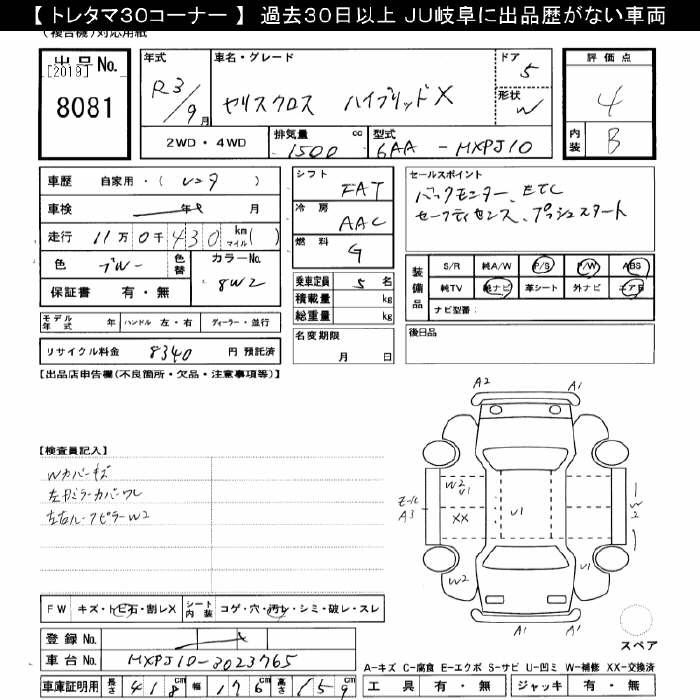 【 トレタマ30コーナー 】 過去30日以上 JU岐阜に出品歴がない車両
(複合機)対応用紙
出品No.
[2019]
8081
年式
R3/9月
車名・グレード
ヤリスクロス ハイブリッドX
ドア
5
形状
W
評価点
4
内装
B
2WD・4WD
排気量
1500 cc
型式
6AA - MXPJ10
車歴 自家用・( レンタ )
車検 年 月
走行 11万0千430 km マイル( )
色 ブルー
色替
カラーNo.
8W2
保証書 有・無
モデル年式 年 ハンドル 左・右 ディーラー・並行
リサイクル料金 8340 円 預託済
シフト
FAT
冷房
AAC
燃料
G
乗車定員 5 名
積載量 kg
総重量 kg
名変期限
月 日
セールスポイント
バックモニター、ETC
セーフティセンス、プッシュスタート
装備品
S/R 純A/W P/S P/W ABS
純TV 純ナビ 革シート 外ナビ エアB
ナビ型番:
後日品
【出品店申告欄(不良箇所・欠品・注意事項等)】
【検査員記入】
Wカバーキズ
左ドミラーカバーワレ
左右ルーフピラーW2
FW キズ・トビ石・割レX
シート内装 コゲ・穴・汚レ・シミ・破レ・スレ
登録No.
車台No. MXPJ10-3023765
車庫証明用 長さ 418cm 幅 176cm 高さ 159cm
A2
A1
モール
A3
W2
U1
XX
U1
W2
W2
U1
A1
A1
スペア
A-キズ C-腐食 E-エクボ S-サビ U-凹ミ W-補修 XX-交換済
工具 有・無 ジャッキ 有・無